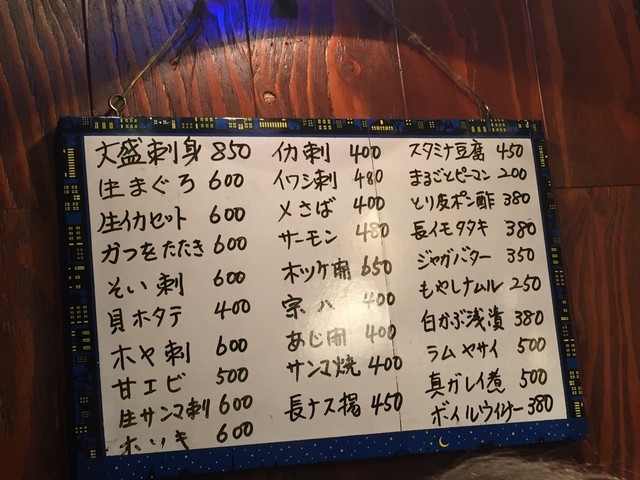 大盛刺身 850
生まぐろ 600
生イカセット 600
かつをたたき 600
そい刺 600
貝ホタテ 400
ホヤ刺 600
甘エビ 500
生サンマ刺 600
ホッキ 600
イカ刺 400
イワシ刺 480
〆さば 400
サーモン 480
ホッケ開 650
宗八 400
あじ開 400
サンマ焼 400
長ナス揚 450
スタミナ豆腐 450
まるごとピーマン 200
とり皮ポン酢 380
長イモタタキ 380
ジャガバター 350
もやしナムル 250
白かぶ浅漬 380
ラムヤサイ 500
真ガレイ煮 500
ボイルウインナー 380